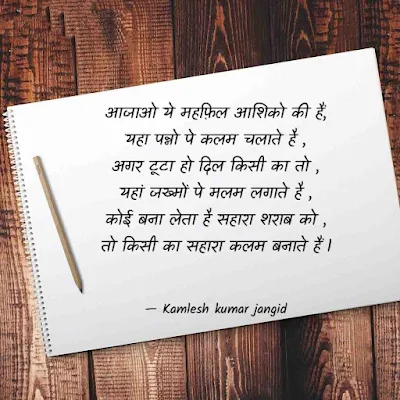 आजाओ ये महफ़िल आशिको की हैं,
यहा पन्नो पे कलम चलाते है ,
अगर टूटा हो दिल किसी का तो ,
यहां जख्मों पे मलम लगाते है ,
कोई बना लेता है सहारा शराब को ,
तो किसी का सहारा कलम बनाते हैं ।
— Kamlesh kumar jangid